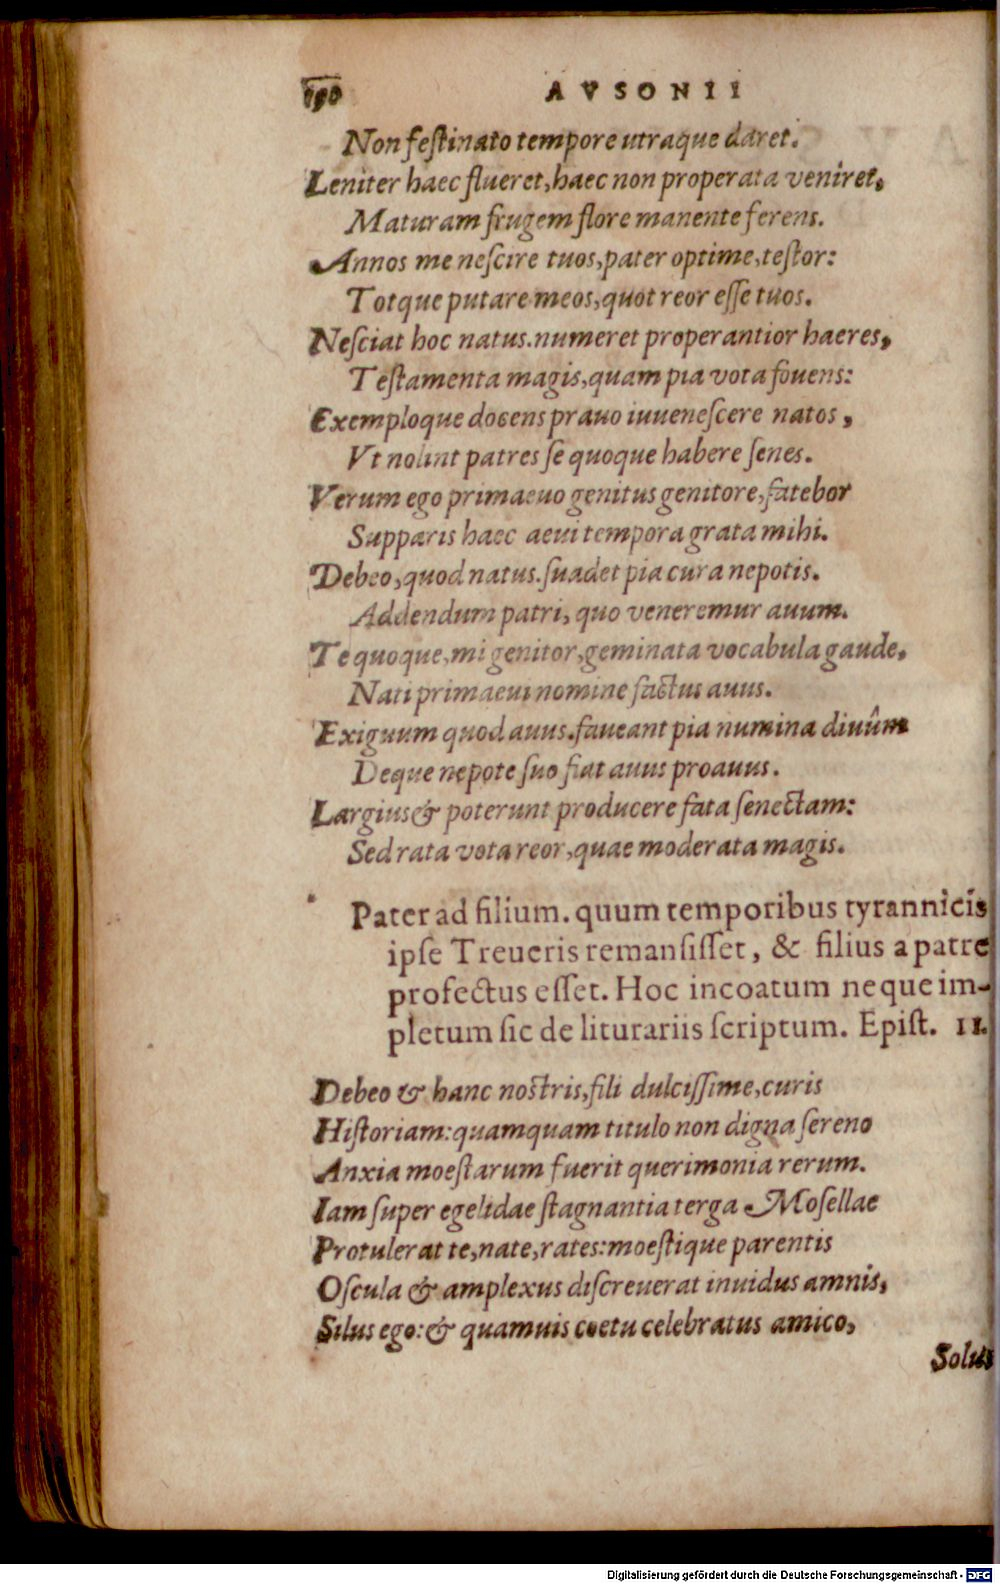 190 AVSONII
Non festinato tempore utraque daret.
Leniter haec flueret, haec non properata veniret,
Maturam frugem flore manente ferens.
Annos me nescire tuos, pater optime, testor:
Totque putare meos, quot reor esse tuos.
Nesciat hoc natus. numeret properantior haeres,
Testamenta magis, quam pia vota fouens:
Exemploque docens prauo iuuenescere natos,
Vt nolint patres se quoque habere senes.
Verum ego primaeuo genitus genitore, fatebor
Supparis haec aeui tempora grata mihi.
Debeo, quod natus. suadet pia cura nepotis.
Addendum patri, quo veneremur auum.
Te quoque, mi genitor, geminata vocabula gaude,
Nati primaeui nomine factus auus.
Exiguum quod auus. faueant pia numina diuûm
Deque nepote suo fiat auus proauus.
Largius & poterunt producere fata senectam:
Sed rata vota reor, quae moderata magis.
Pater ad filium. quum temporibus tyrannicis
ipse Treueris remansisset, & filius a patre
profectus esset. Hoc incoatum neque im-
pletum sic de liturariis scriptum. Epist. II.
Debeo & hanc nostris, fili dulcissime, curis
Historiam: quamquam titulo non digna sereno
Anxia moestarum fuerit querimonia rerum.
Iam super egelidae stagnantia terga Mosellae
Protulerat te, nate, rates: moestique parentis
Oscula & amplexus discreuerat inuidus amnis,
Silus ego: & quamuis coetu celebratus amico,
Solus
Digitalisierung gefördert durch die Deutsche Forschungsgemeinschaft - DFG